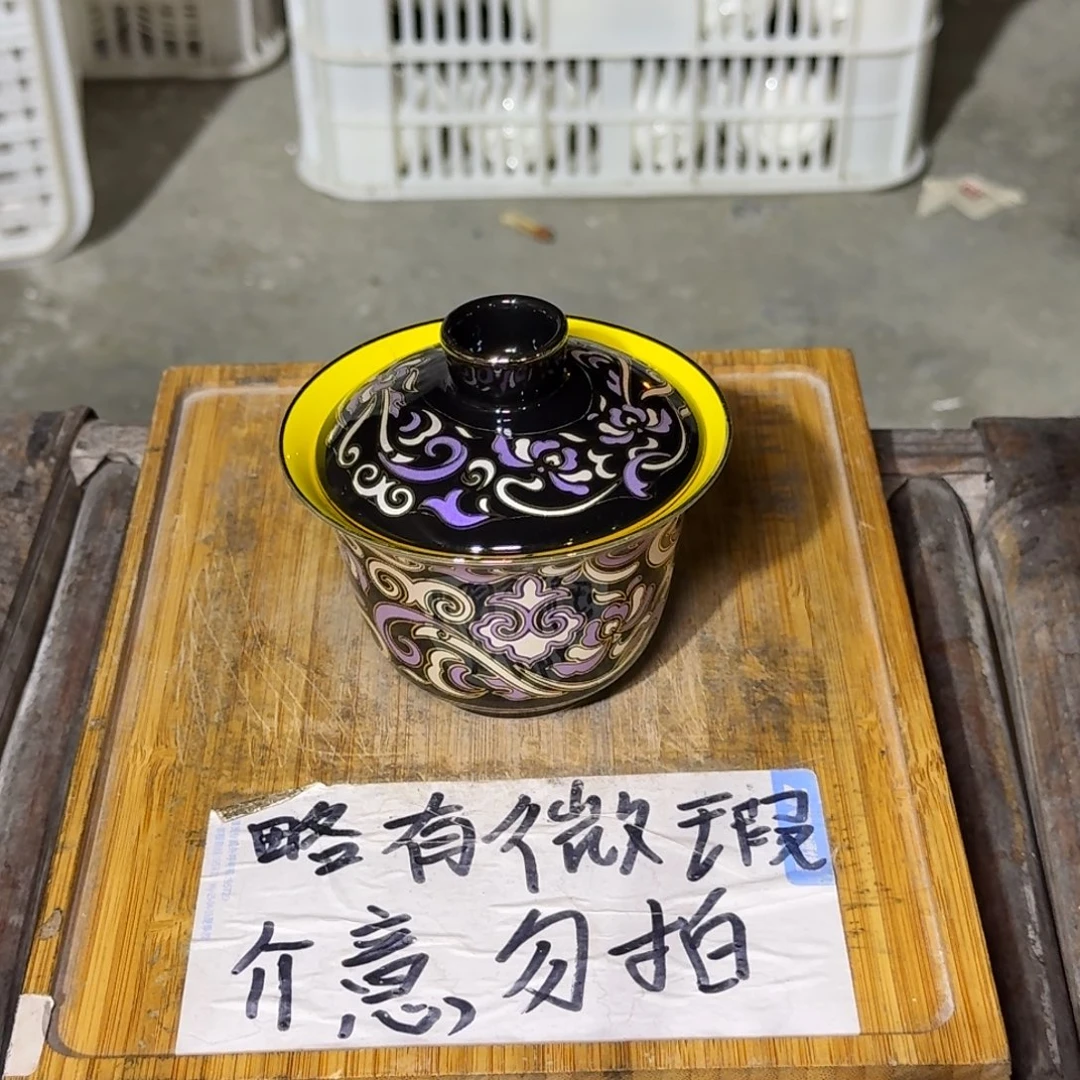 略有微瑕
介意勿拍